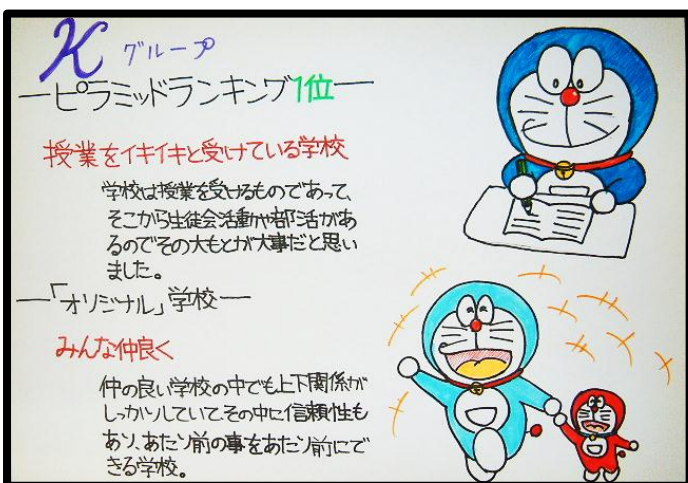 K グループ
ピラミッドランキング1位
授業をイキイキと受けている学校
学校は授業を受けるものであって、
そこから生徒会活動や部活があ
るのでその大もとが大事だと思い
ました。
「オリジナル」学校
みんな仲良く
仲の良い学校の中でも上下関係が
しっかりしていて、その中に信頼性も
あり、あたり前の事をあたり前にで
きる学校。